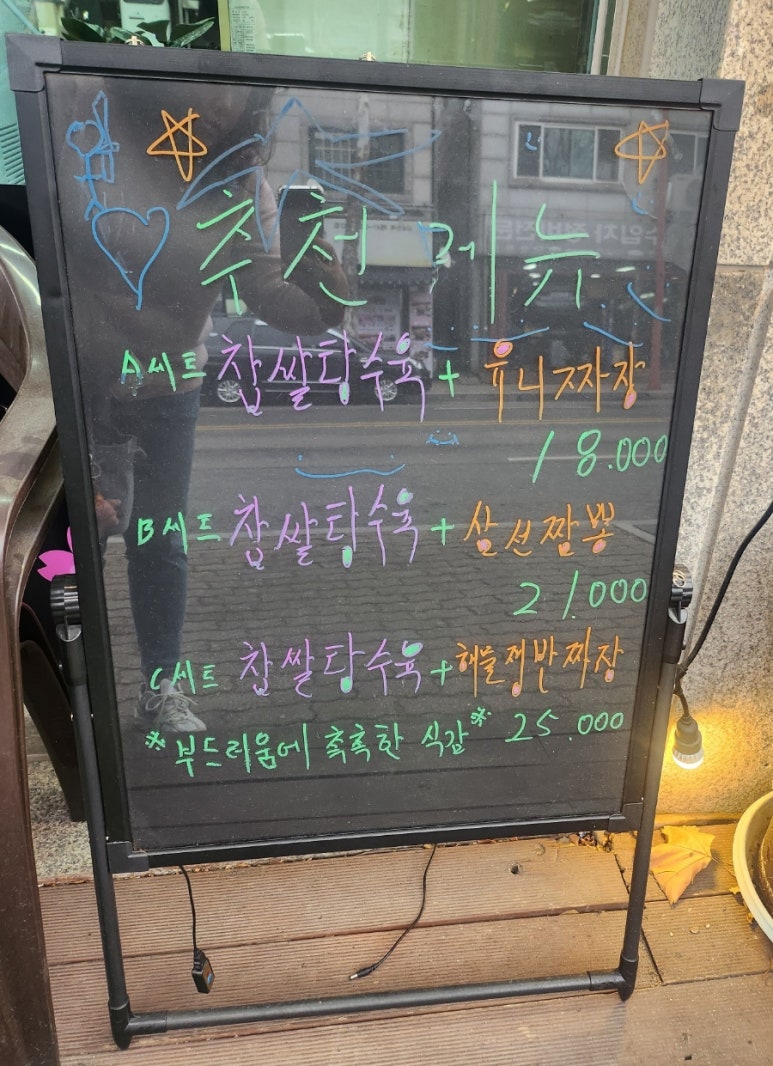 추천메뉴
A세트 찹쌀탕수육 + 유니짜장
18.000
B세트 찹쌀탕수육 + 삼선짬뽕
21.000
C세트 찹쌀탕수육 + 해물쟁반짜장
25.000
※부드리움에 훅훅한 식감※